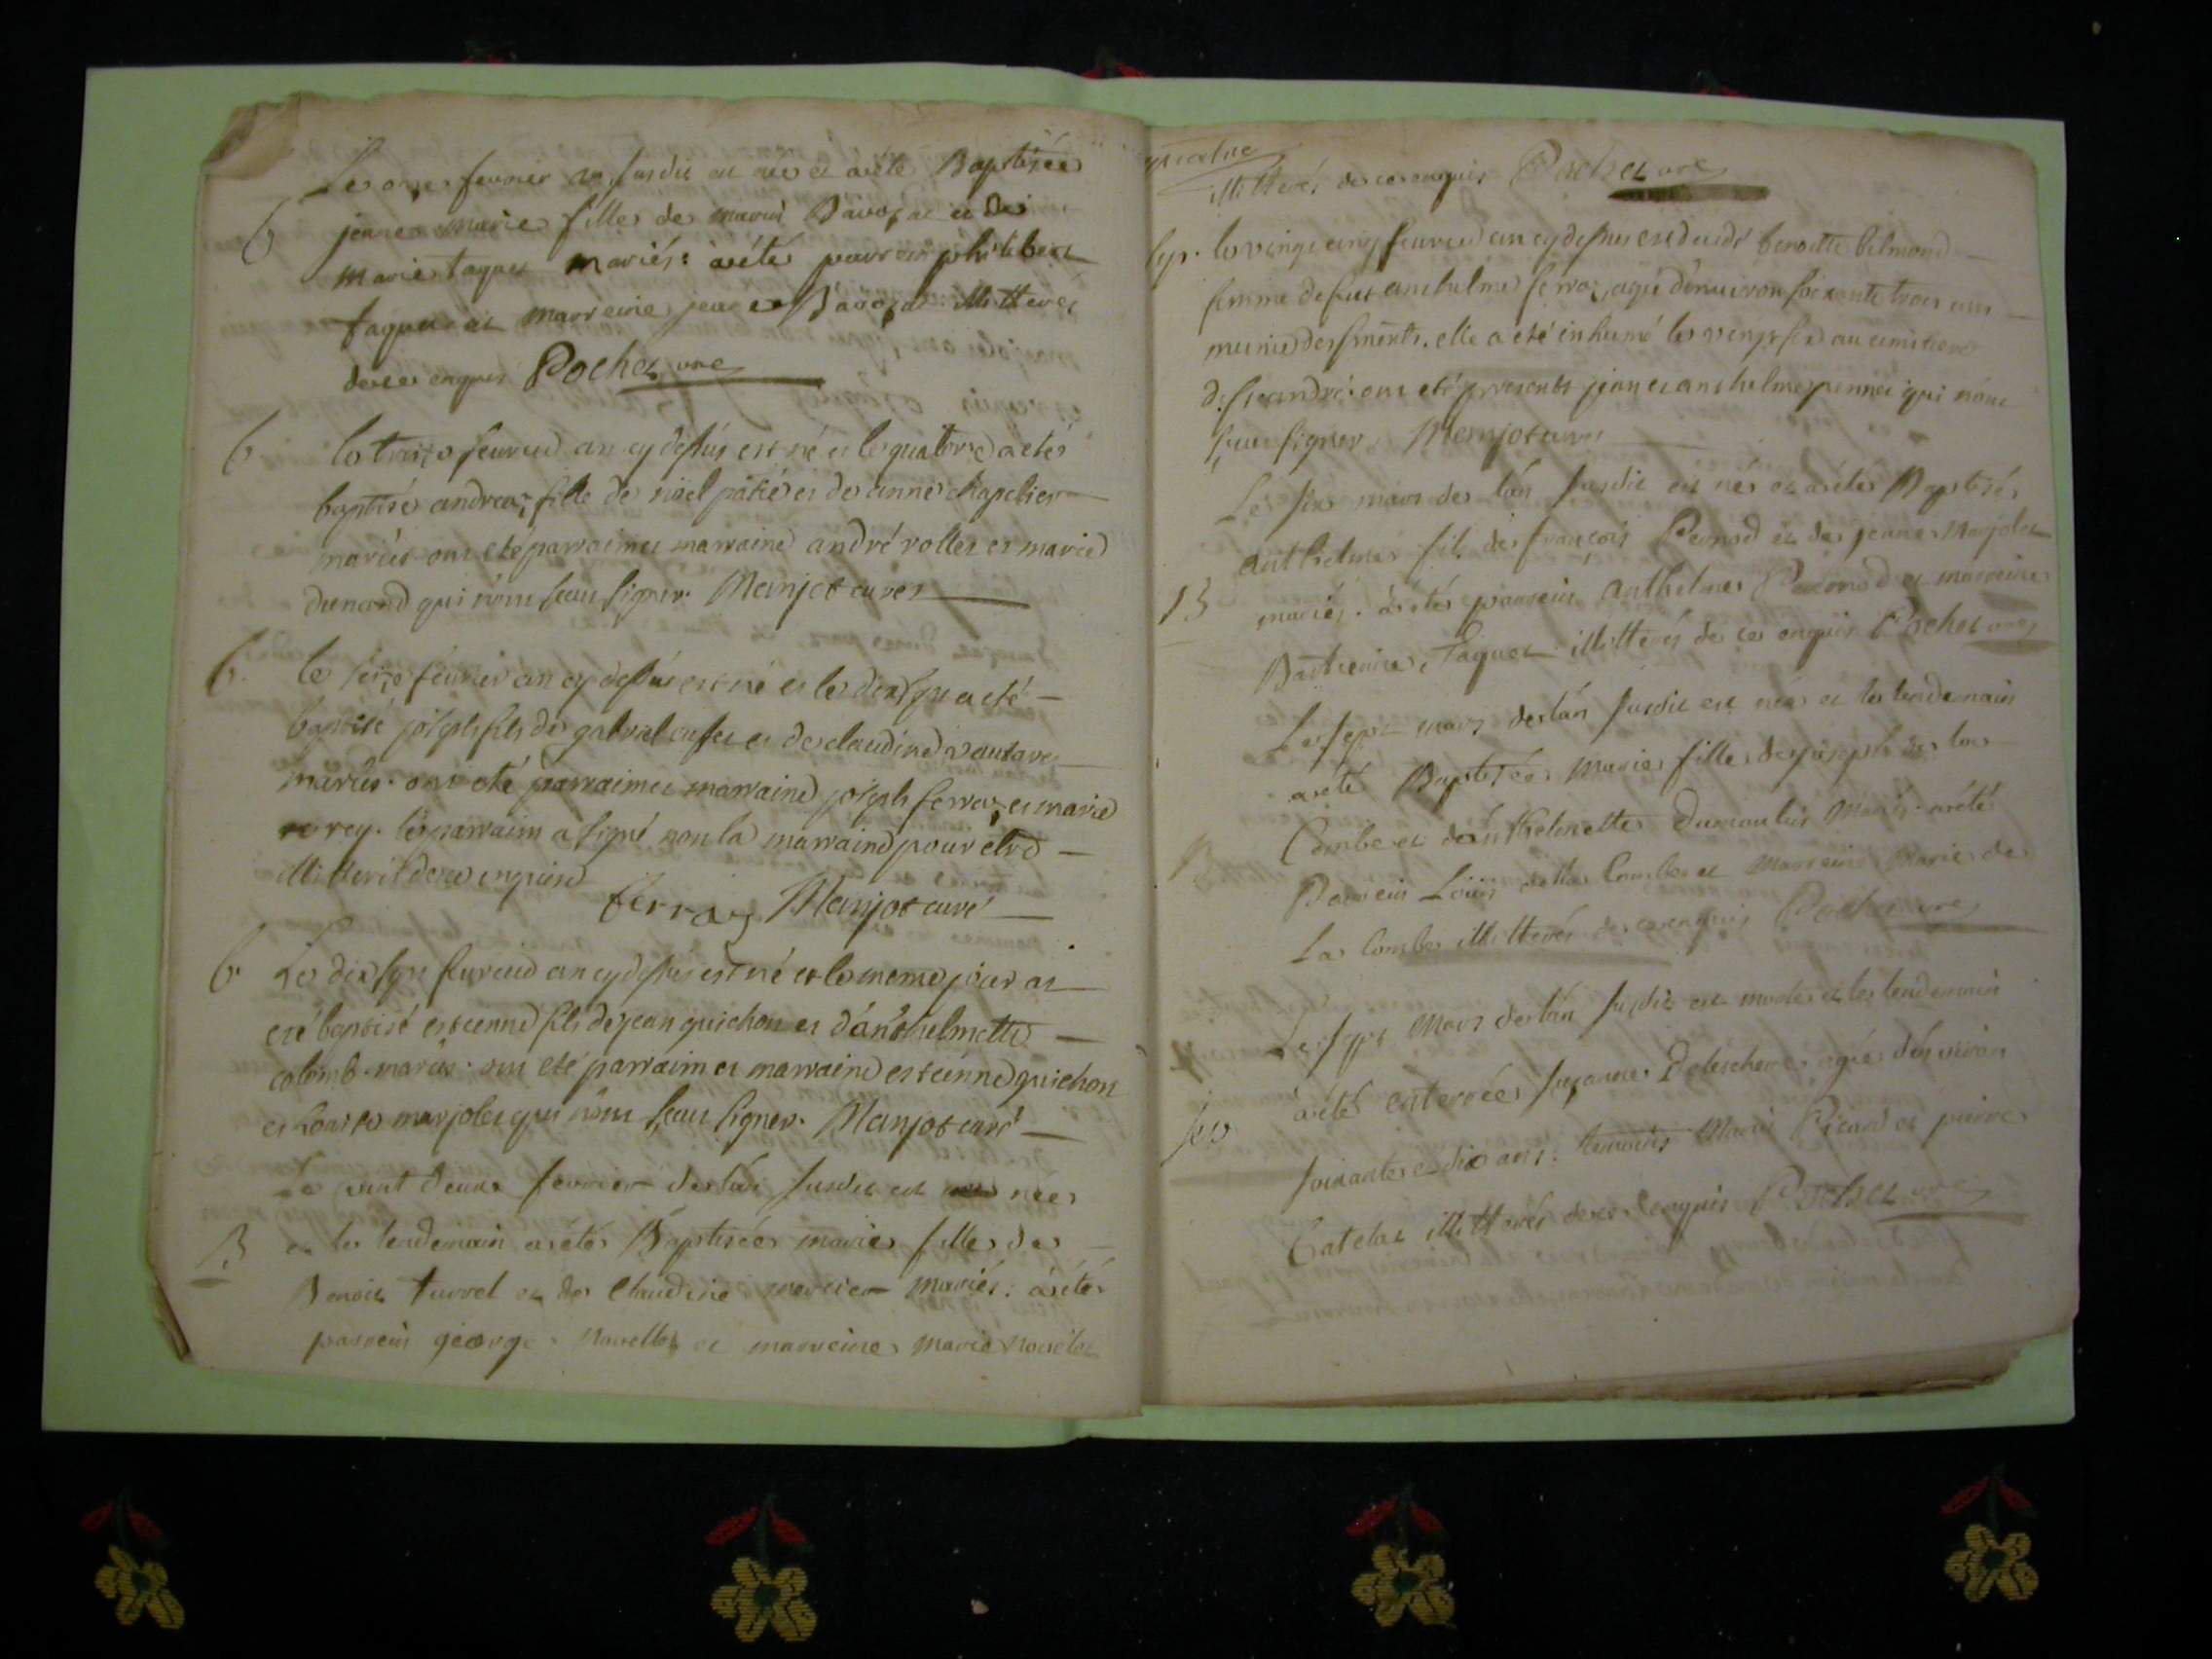 Le onze fevrier an susdit est née et a été Baptisée
B
jeanne Marie fille de marin Bavozat et de
Marie taquet mariés: a été parrein philibert
taquet et marreine jeane Bavozat illitterés
de ce enquis Pochet vre
b. le treize feuvrié an cy dessus est né et le quatorze a été
baptisé andrea, fille de noël pâtie et de anne chapelier
mariés. ont eté parraim et marraine andré rollet et marie
dunand qui nònt sceu signer. Manjot curé
b. le seize février an cy dessus est né et le dix sept a eté
baptisé joseph fils de gabriel et de claudine
mariés. ont eté parraim et marraine joseph ferraz, et marie
rey. le parraim a signé non la marraine pour etre
illitteris de ce enquise
ferraz Manjot curé
b. Le dix sept feuvrié an cy dessus est né et le meme jour at
eté baptisé estienne fils de jean guichon et d'anthelmette
colomb. mariés. ont eté parraim et marraine estienne guichon
et Louise marjolet qui nònt sceu signer. Manjot curé
Le vint deux fevrier de l'an susdit est née
B et le lendemain a été Baptisée marie fille de
Benoit turrel et de Claudine mercier mariés: a été
parrein george et marreine Marie
illitterés de ce enquis Pochet vre
sep. le vingt cinq feuvrié an cy dessus est decidé benoitte bilmond
femme de fut anthelme ferraz, agé d'enuiron soixante trois ans
munie des sments. elle a eté inhumé le vingt six au cimitiere
de st andré. ont eté presents jean et anthelme pennet qui nònt
sceu signer. Manjot curé
Le six mars de l'an susdit est né et a été Baptisé
anthelme fils de françois Pernod et de jeanne Marjolet
B mariés. a été parrein anthelme et marreine
taquet illitterés de ce enquis Pochet vre
Le sept mars de l'an susdit est née et le lendemain
a été Baptisée Marie fille de joseph de la
B Combe et d'anthelmette Dumoulin Mariés. a été
Parrein Loüis de la Combe et Marreine Marie de
La Combe illitterés de ce enquis Pochet vre
Le sept Mars de l'an susdit est morte et le lendemain
a été enterrée suzanne agée d'environ
sep soixante et dix ans. temoins Marin Picard et pierre
Catelat illitterés de ce enquis Pochet vre